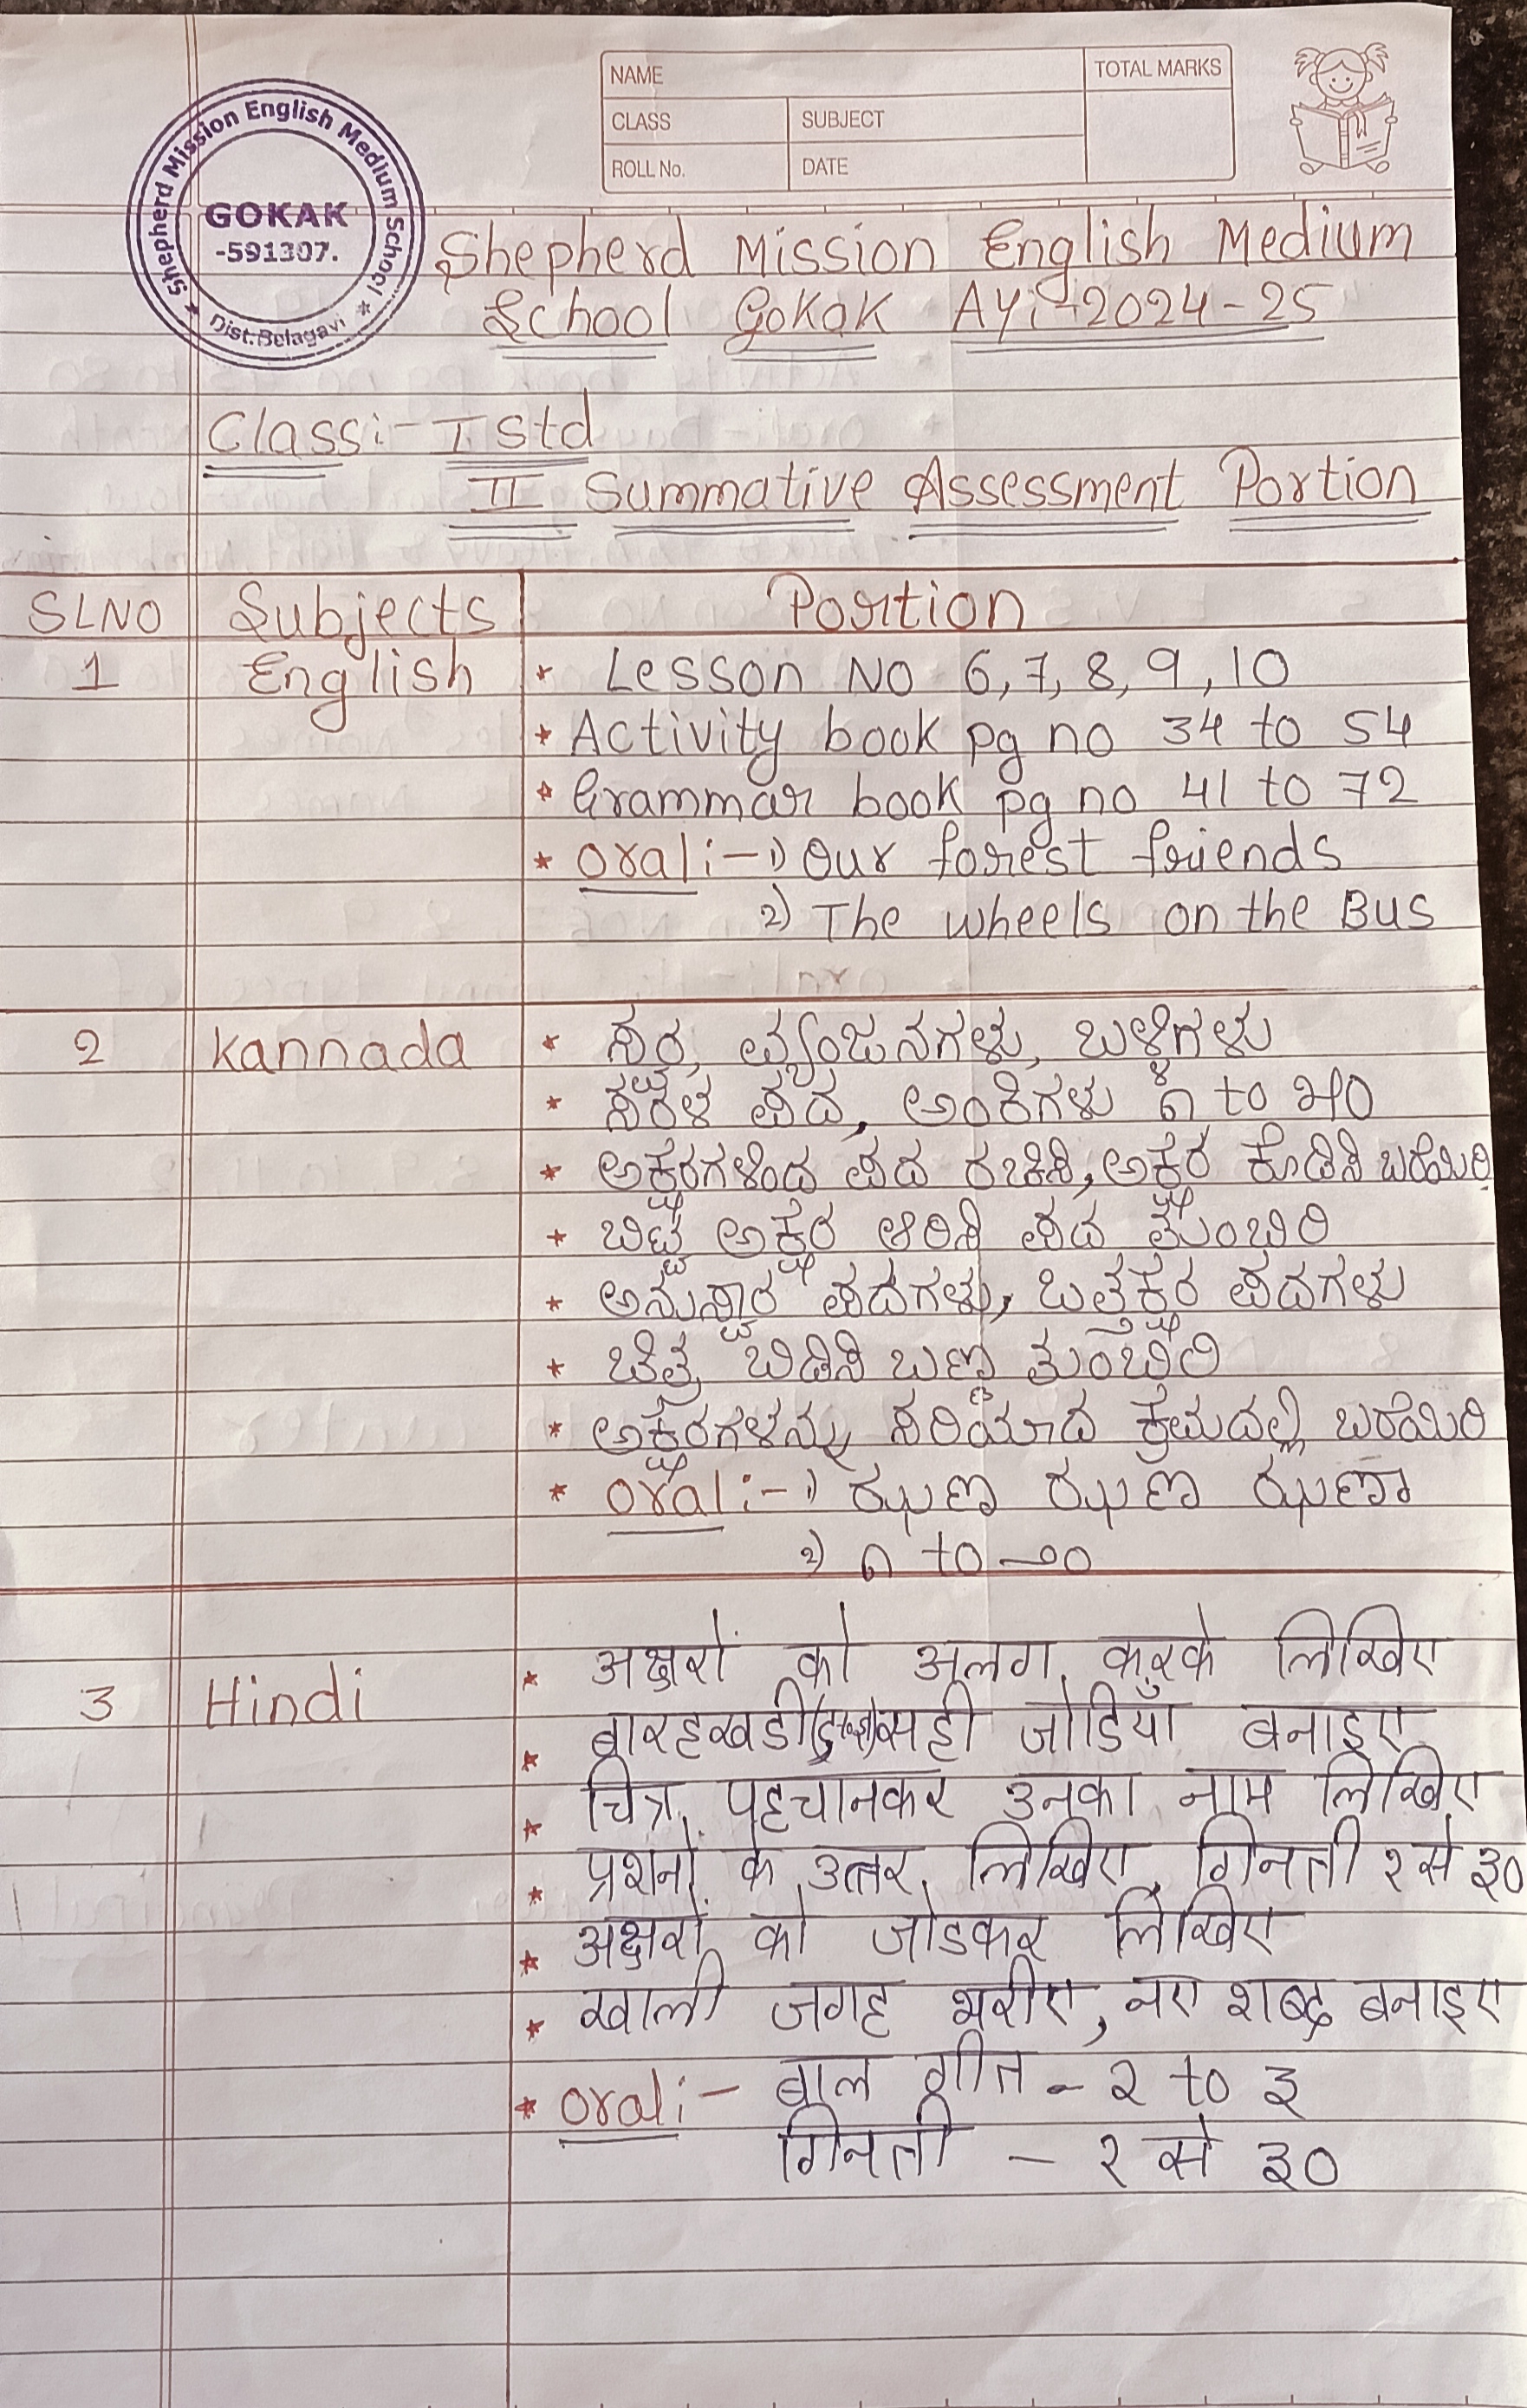 NAME
TOTAL MARKS
CLASS
SUBJECT
ROLL No.
DATE
Shepherd Mission English Medium School
GOKAK
-591307.
Dist:Belagavi
Shepherd Mission English Medium
School Gokak AY:-2024-25
Class:- I std
II Summative Assessment Portion
SLNO Subjects Portion
1 English * Lesson No 6,7,8,9,10
* Activity book pg no 34 to 54
* Grammar book pg no 41 to 72
* Oral:- 1) Our forest friends
2) The wheels on the Bus
2 Kannada * ಸ್ವರ, ವ್ಯಂಜನಗಳು, ಬಳ್ಳಿಗಳು
* ಸರಳ ಪದ, ಅಂಕಿಗಳು ೧ to ೫೦
* ಅಕ್ಷರಗಳಿಂದ ಪದ ರಚಿಸಿ, ಅಕ್ಷರ ಕೂಡಿಸಿ ಬರೆಯಿರಿ
* ಬಿಟ್ಟ ಅಕ್ಷರ ಆರಿಸಿ ಪದ ತುಂಬಿರಿ
* ಅನುಸ್ವಾರ ಪದಗಳು, ಒತ್ತಕ್ಷರ ಪದಗಳು
* ಚಿತ್ರ ಬಿಡಿಸಿ ಬಣ್ಣ ತುಂಬಿರಿ
* ಅಕ್ಷರಗಳನ್ನು ಸರಿಯಾದ ಕ್ರಮದಲ್ಲಿ ಬರೆಯಿರಿ
* Oral:- 1) ಝಣ ಝಣ ಝಣಾ
2) ೧ to
3 Hindi * अक्षरों को अलग करके लिखिए
* बारहखडी सही जोडियाँ बनाइए
* चित्र पहचानकर उनका नाम लिखिए
* प्रशनों के उत्तर लिखिए, गिनती १ से ३०
* अक्षरों को जोडकर लिखिए
* खाली जगह भरीए, नए शब्द बनाइए
* Oral:- बाल गीत - २ to ३
गिनती - १ से ३०